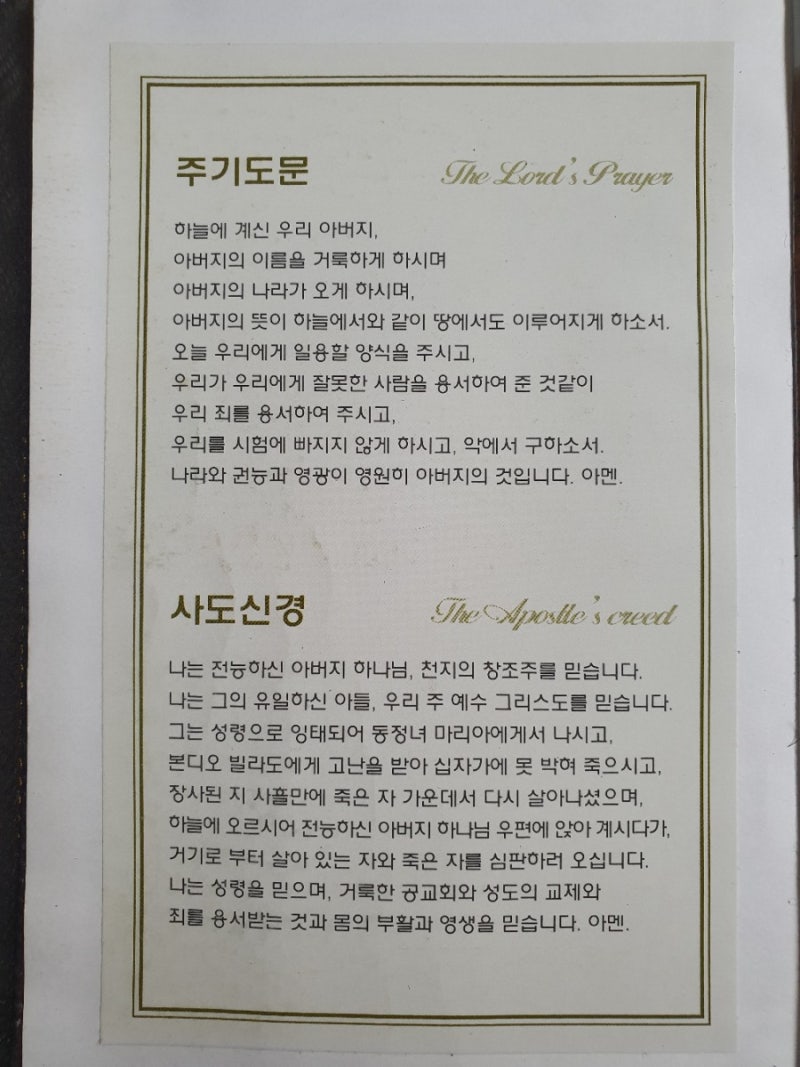 주기도문 The Lord's Prayer
하늘에 계신 우리 아버지,
아버지의 이름을 거룩하게 하시며
아버지의 나라가 오게 하시며,
아버지의 뜻이 하늘에서와 같이 땅에서도 이루어지게 하소서.
오늘 우리에게 일용할 양식을 주시고,
우리가 우리에게 잘못한 사람을 용서하여 준 것같이
우리 죄를 용서하여 주시고,
우리를 시험에 빠지지 않게 하시고, 악에서 구하소서.
나라와 권능과 영광이 영원히 아버지의 것입니다. 아멘.
사도신경 The Apostle's creed
나는 전능하신 아버지 하나님, 천지의 창조주를 믿습니다.
나는 그의 유일하신 아들, 우리 주 예수 그리스도를 믿습니다.
그는 성령으로 잉태되어 동정녀 마리아에게서 나시고,
본디오 빌라도에게 고난을 받아 십자가에 못 박혀 죽으시고,
장사된 지 사흘만에 죽은 자 가운데서 다시 살아나셨으며,
하늘에 오르시어 전능하신 아버지 하나님 우편에 앉아 계시다가,
거기로 부터 살아 있는 자와 죽은 자를 심판하러 오십니다.
나는 성령을 믿으며, 거룩한 공교회와 성도의 교제와
죄를 용서받는 것과 몸의 부활과 영생을 믿습니다. 아멘.